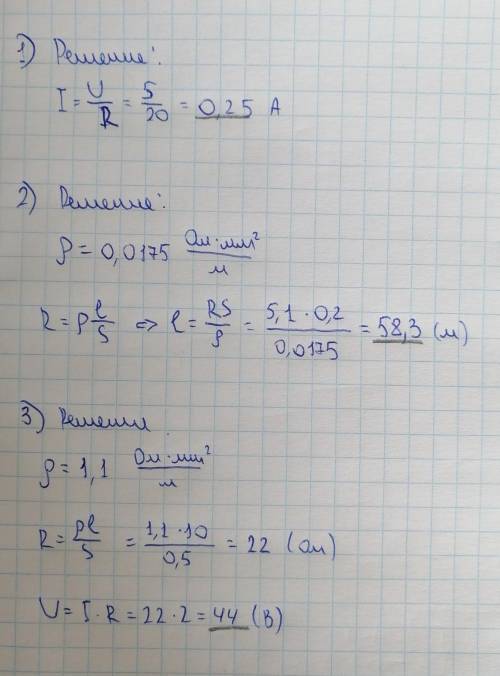 1) Решение:
I = U/R = 5/20 = 0,25 А
2) Решение:
ρ = 0,0175 Ом·мм²/м
R = ρ l/S => l = RS/ρ = 5,1 · 0,2/0,0175 = 58,3 (м)
3) Решения
ρ = 1,1 Ом·мм²/м
R = ρl/S = 1,1 · 10/0,5 = 22 (Ом)
U = I · R = 22 · 2 = 44 (В)